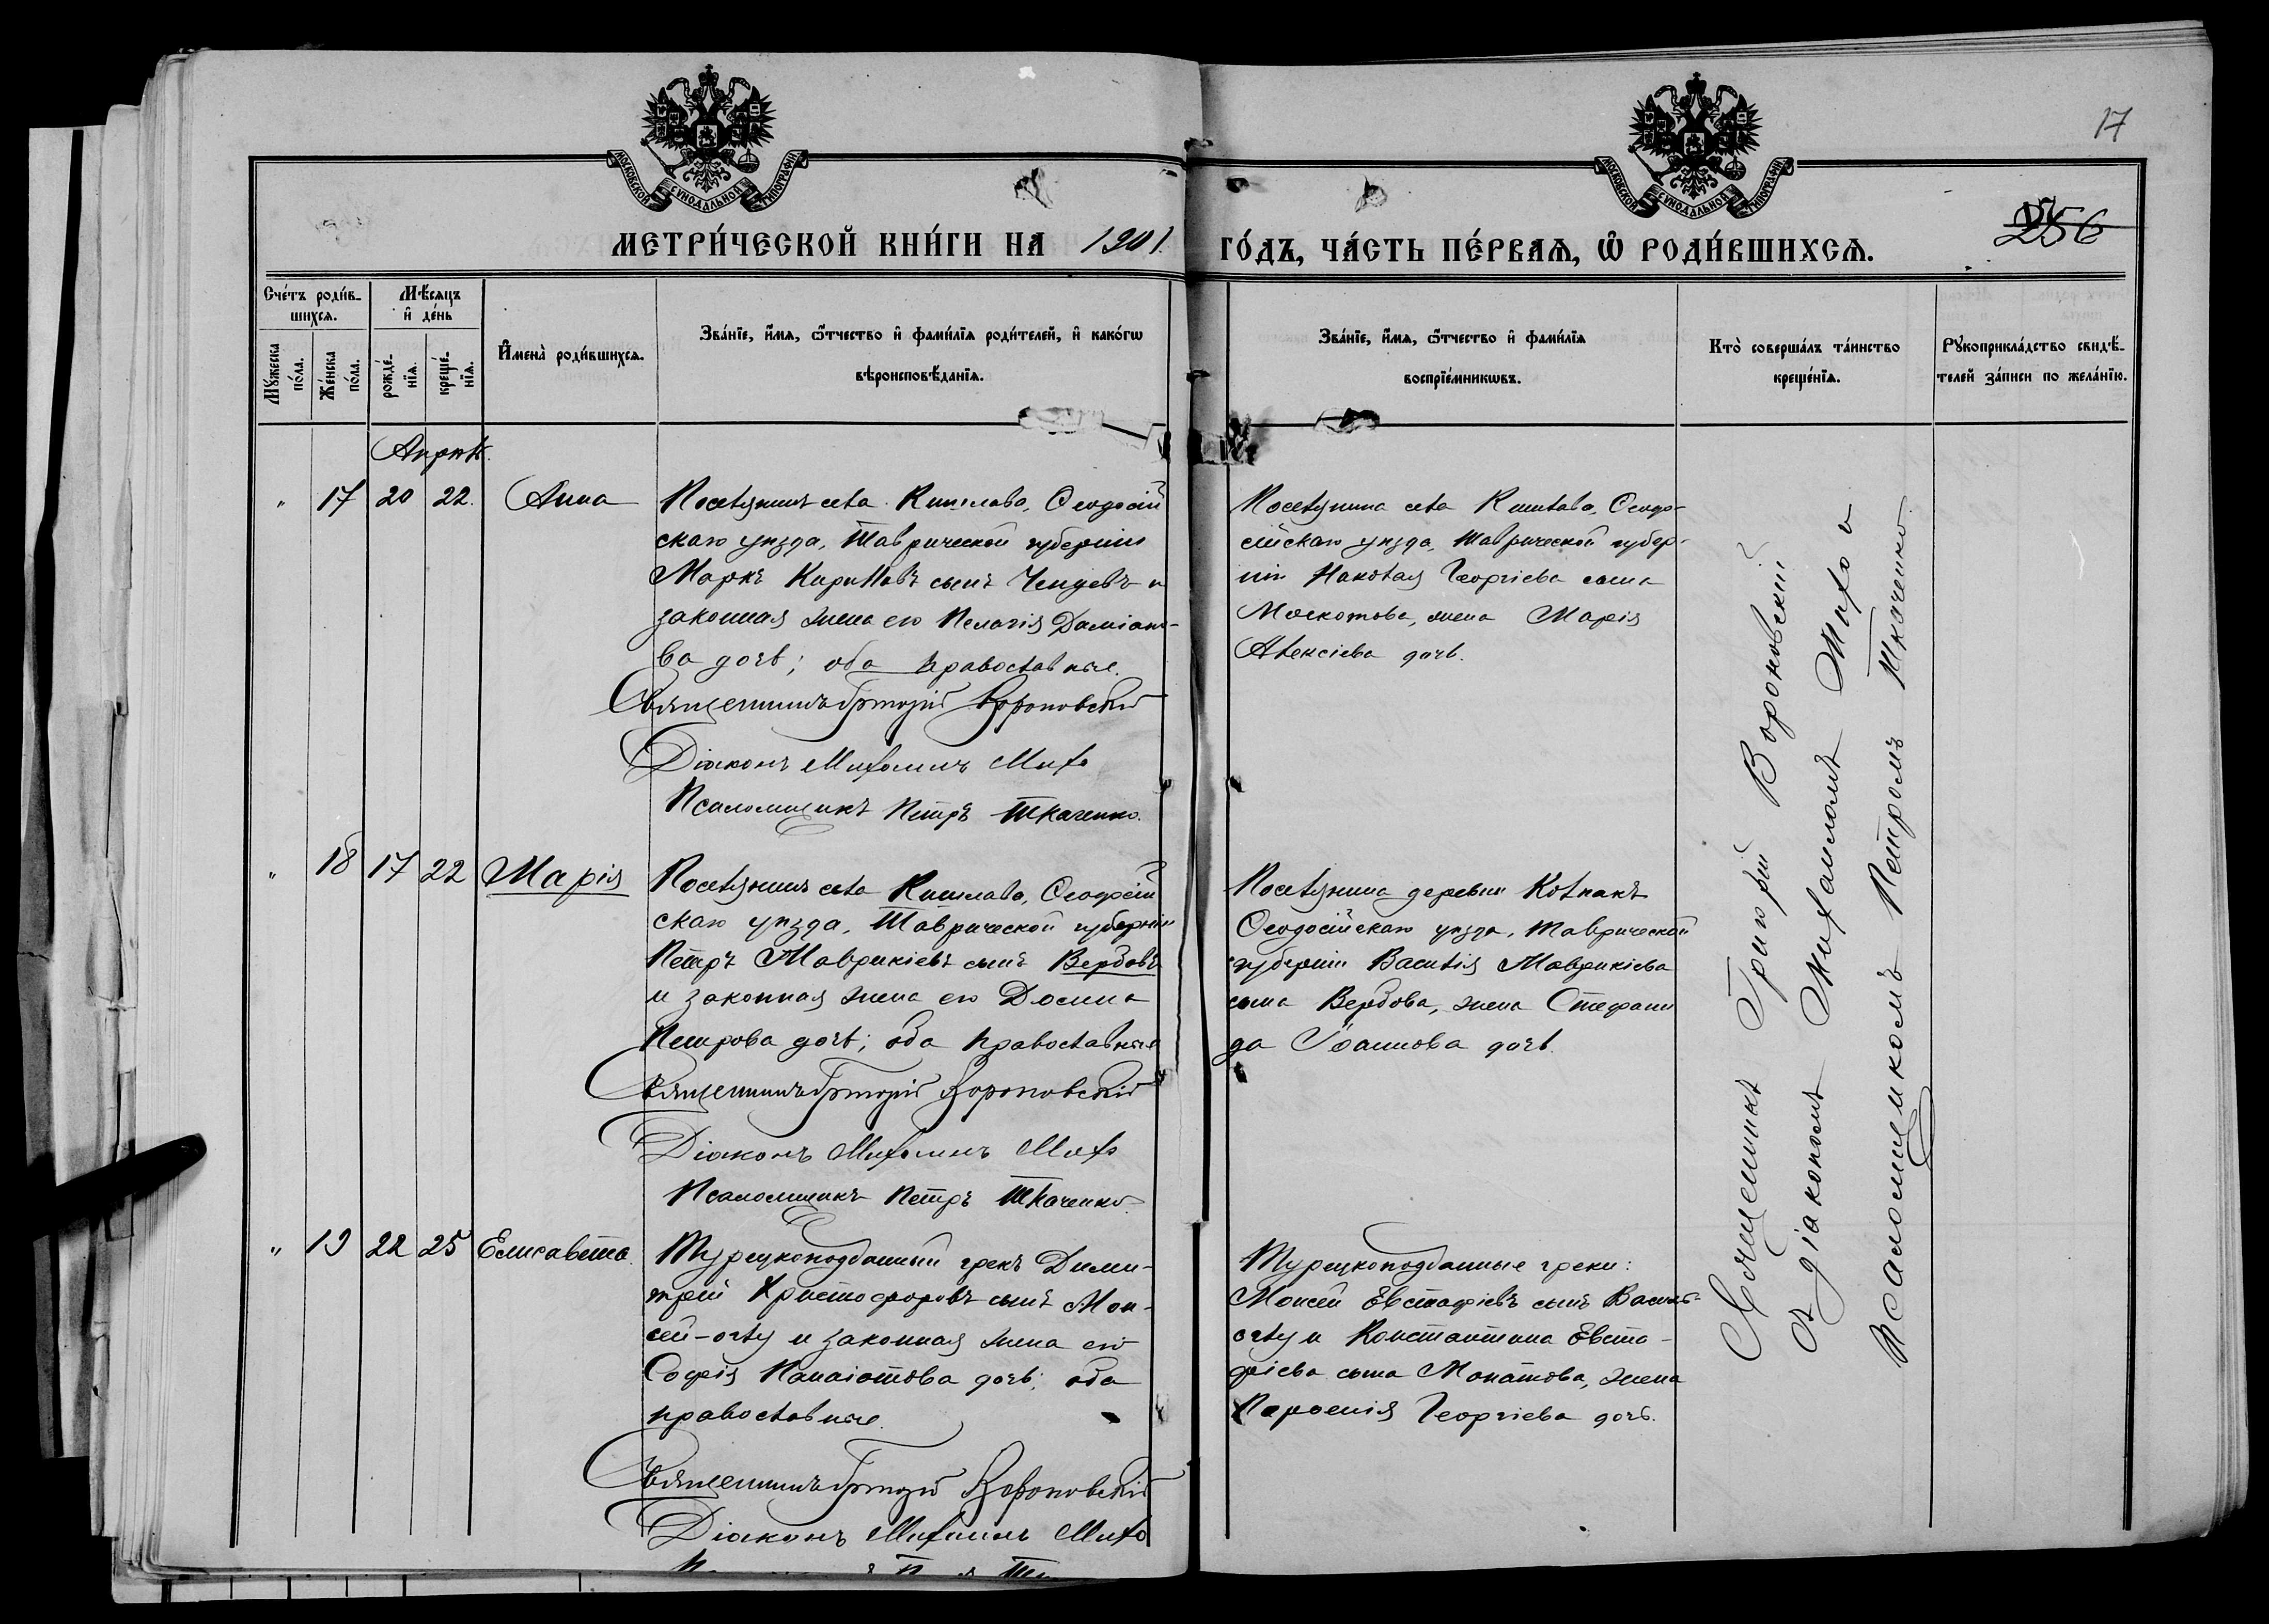 17
МОСКОВСКОЙ СѴНОДАЛЬНОЙ ТИПОГРАФІИ
МОСКОВСКОЙ СѴНОДАЛЬНОЙ ТИПОГРАФІИ
256
МЕТРИ́ЧЕСКОЙ КНИ́ГИ НА 1901. ГО́ДЪ, ЧА́СТЬ ПЕ́РВАѦ, Ѡ҆ РОДИ́ВШИХСѦ.
Сче́тъ роди́в-
шихсѧ.
Мꙋ́жеска по́ла.
Же́нска по́ла.
Мѣ́сѧцъ
и҆ де́нь
рожде́-
нїѧ.
креще́-
нїѧ.
И҆мена̀ роди́вшихсѧ.
Зва́нїе, и҆́мѧ, ѻ҆́тчество и҆ фами́лїѧ роди́телей, и҆ како́гѡ
вѣроисповѣ́данїѧ.
Зва́нїе, и҆́мѧ, ѻ҆́тчество и҆ фами́лїѧ
воспрїе́мникѡвъ.
Кто̀ соверша́лъ та́инство
креще́нїѧ.
Рꙋкоприкла́дство свидѣ́-
телей за́писи по жела́нїю.
Апрѣль.
" 17 20 22. Анна
Поселянинъ села Кишлава, Ѳеодосій
скаго уѣзда, Таврической губерніи
Маркъ Кирилловъ сынъ Ченцевъ и
законная жена его Пелагія Даміано-
ва дочь; оба православные.
Священникъ Григорій Вороновскій
Діаконъ Михаилъ Михо
Псаломщикъ Петръ Ткаченко.
Поселянина села Кишлава, Ѳеодо-
сійскаго уѣзда, Таврической губер-
ніи Николая Георгіева сына
Москотова, жена Марія
Алексіева дочь.
" 18 17 22 Марія
Поселянинъ села Кишлава, Ѳеодосій
скаго уѣзда, Таврической губерніи
Петръ Маврикіевъ сынъ Вербовъ
и законная жена его Домна
Петрова дочь; оба православные
Священникъ Григорій Вороновскій
Діаконъ Михаилъ Михо
Псаломщикъ Петръ Ткаченко.
Поселянина деревни Колпакъ
Ѳеодосійскаго уѣзда, Таврической
губерніи Василія Маврикіева
сына Вербова, жена Стефани
да Іоаннова дочь.
" 19 22 25 Елисавета.
Турецкоподданный грекъ Дими-
трій Христофоровъ сынъ Мои-
сей-оглу и законная жена его
Софія Панаіотова дочь; оба
православные.
Священникъ Григорій Вороновскій
Діаконъ Михаилъ Михо
Турецкоподданные греки:
Моисей Евстафіевъ сынъ Василь-
оглу и Константина Евста-
фіева сына Монатова, жена
Парѳенія Георгіева дочь.
Священникъ Григорій Вороновскій
съ діакономъ Михаиломъ Михо и
псаломщикомъ Петромъ Ткаченко.